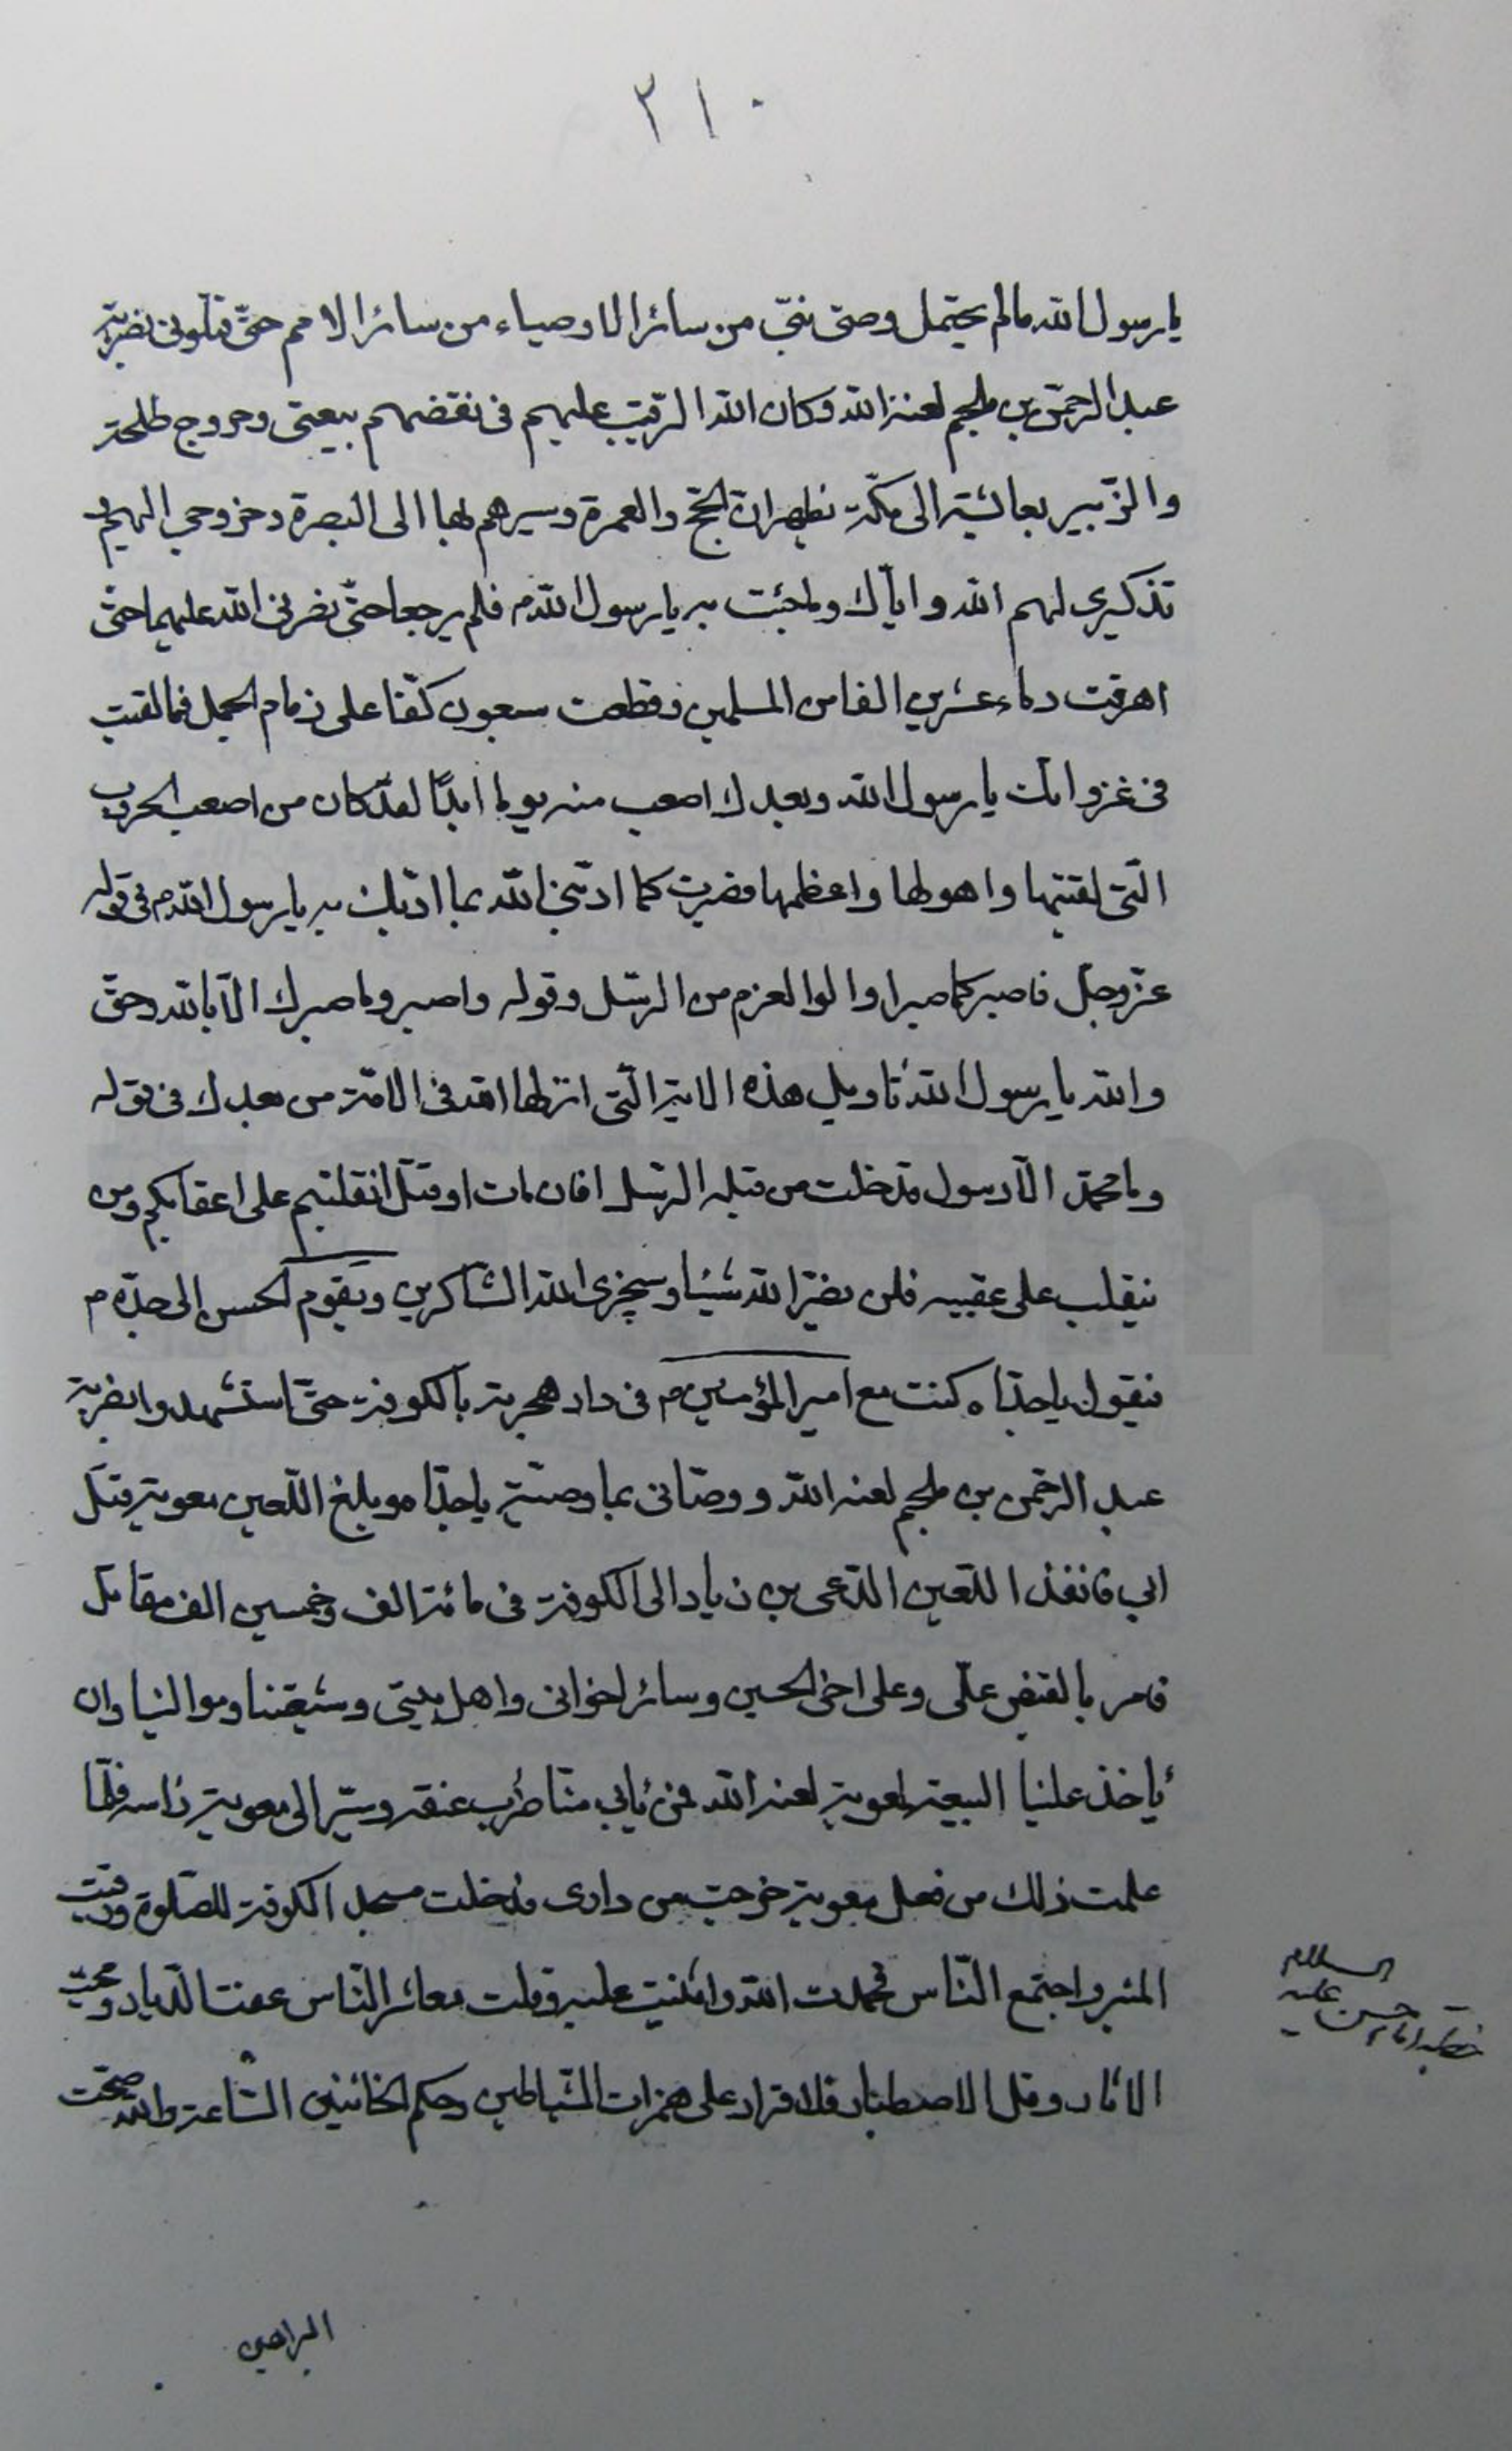 ٢١٠
يا رسول الله ما لم يحتمل وصى نبىّ من سائر الاوصياء من سائر الامم حتّى قتلونى بضربة
عبد الرحمن بن ملجم لعنه الله وكان الله الرقيب عليهم فى نقضهم بيعتى وخروج طلحة
والزّبير بعائشة الى مكّة يظهران الحج والعمرة وسيرهم بها الى البصرة وخروجى اليهم و
تذكيرى لهم الله واياك وما جئت به يا رسول الله م فلم يرجعا حتّى نصرنى الله عليهما حتّى
اهرقت دماء عشرين الفا من المسلمين وقطعت سبعون كفّا على زمام الجمل فما لقيت
فى غزواتك يا رسول الله وبعدك اصعب منه يوما ابدًا لقد كان من اصعب الحروب
التى لقيتها واهولها واعظمها فصبرت كما ادّبنى الله بما ادّبك به يا رسول الله م فى قوله
عزّ وجلّ فاصبر كما صبر اولوا العزم من الرسّل وقوله واصبر وما صبرك الّا بالله وحق
والله يا رسول الله تاويل هذه الاية الّتى انزلها الله فى الامّة من بعدك فى قوله
وما محمّد الّا رسول قد خلت من قبله الرسّل افان مات او قتل انقلبتم على اعقابكم ومن
ينقلب على عقبيه فلن يضرّ الله شيئا وسيجزى الله الشّاكرين ويقوم الحسن الى جدّه م
فيقول يا جدّاه كنت مع امير المؤمنين م فى دار هجرته بالكوفة حتّى استشهد بضربة
عبد الرحمن بن ملجم لعنه الله ووصّانى بما وصّيته يا جدّاه وبلغ اللّعين معوية قتل
ابى فانفذ اللّعين الدّعى بن زياد الى الكوفة فى مائة الف وخمسين الف مقاتل
فامر بالقبض علّى وعلى اخى الحسين وسائر اخوانى واهل بيتى وشيعتنا وموالينا وان
يأخذ علينا البيعة لمعوية لعنه الله فمن يأبى منّا ضرب عنقه وسيّر الى معوية رأسه فلمّا
علمت ذلك من فعل معوية خرجت من دارى فدخلت مسجد الكوفة للصّلوة ورقيت
المنبر واجتمع النّاس فحمدت الله واثنيت عليه وقلت معاشر النّاس عفت الدّيار ومحيت
الاثار وقل الاصطبار فلا قرار على همزات الشّياطين وحكم الخائنين السّاعة والله صحّت
خطبه امام حسن عليه السلام
البراهين